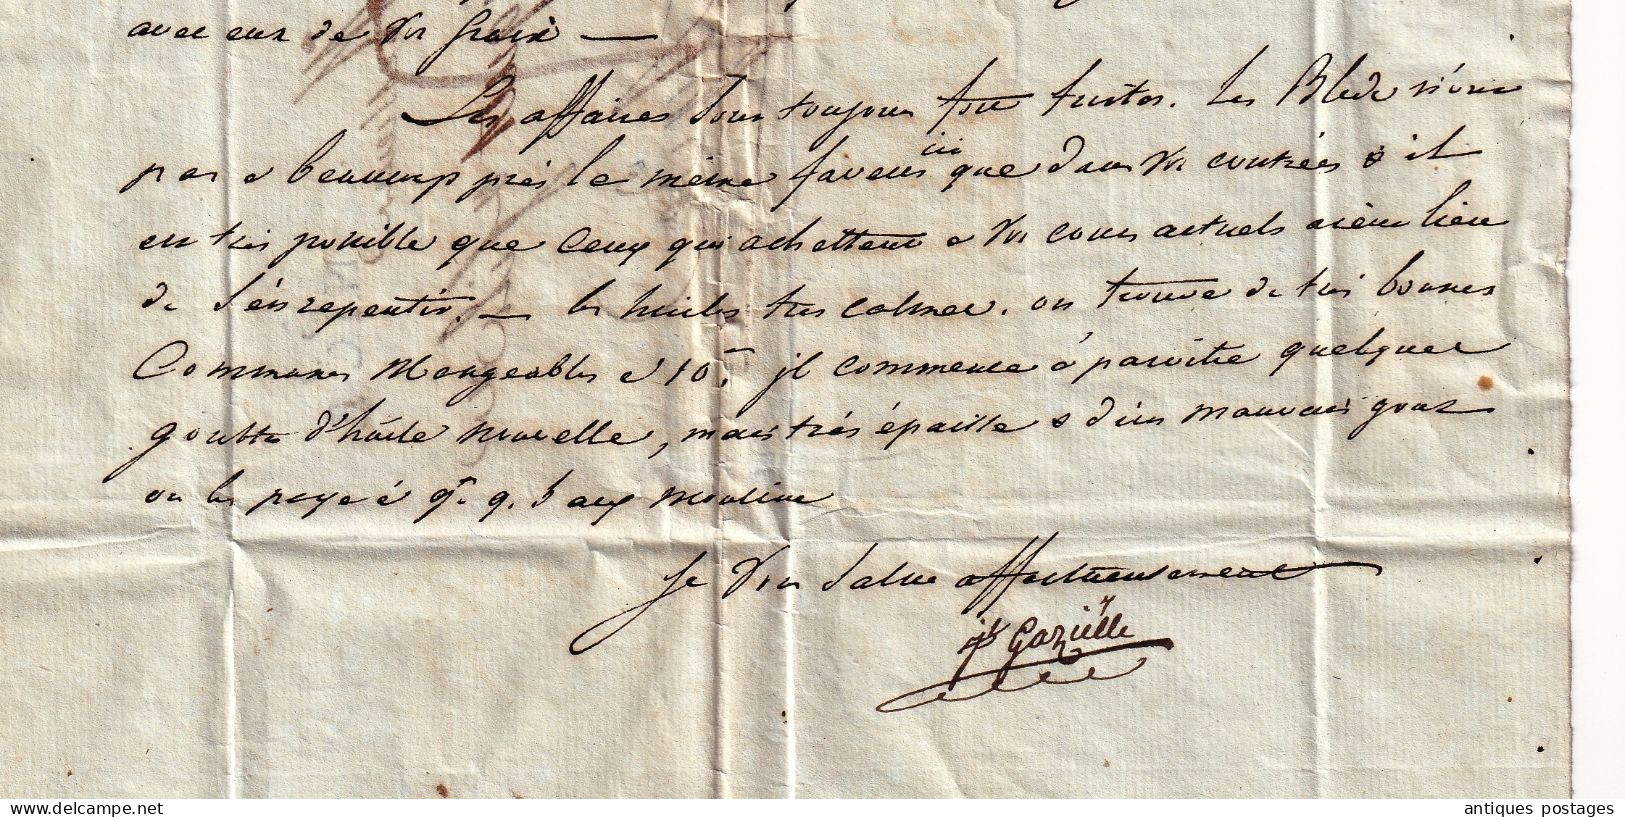 avec eux de Vos frais —
Les affaires sont toujours fort tristes. Les Bleds n'ont
pas a beaucoup près la même faveur ici que dans Vos contrées & il
est tres possible que ceux qui achettent a Vos cours actuels aient lieu
de s'en repentir. — les huiles tres calmes. on trouve de tres bonnes
Communes Mangeables a 10. il commence à paroitre quelques
gouttes d'huile nouvelle, mais très épaisse & d'un mauvais gout
on les paye à 9 aux Moulins
Je Vous salue affectueusement
Gazielle
antiques postages